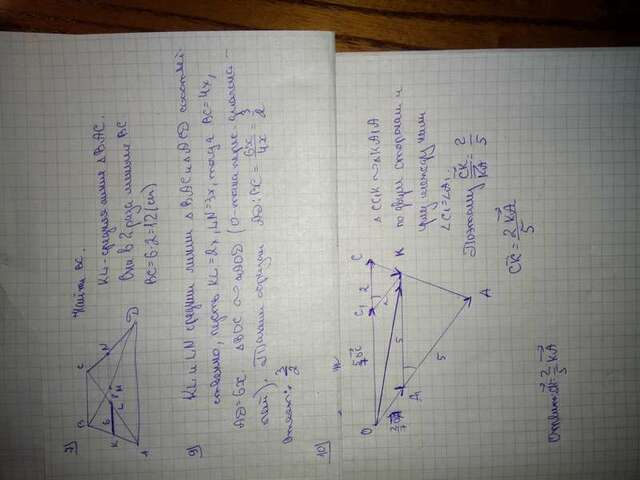 7)
Найти BC.
B C N D A K L M 6
KL - средняя линия △BAC.
Она в 2 раза меньше BC
BC = 6·2 = 12 (см)
9)
KL и LN средние линии △BAC и △ACD соответ-
ственно, пусть KL = 2x, LN = 3x, тогда BC = 4x,
AD = 6x △BOC ∾ △AOD (O - точка перес. диагона-
лей). Таким образом AD:BC = 6x/4x = 3/2
Ответ: 3/2
10)
O C₁ C K A₁ A 5 5 2
△CC₁K ∾ △KA₁A
по двум сторонам и
углу между ними
∠C₁ = ∠A₁
Поэтому CK/KA = 2/5
CK = 2KA/5
Ответ: 2/5 KA